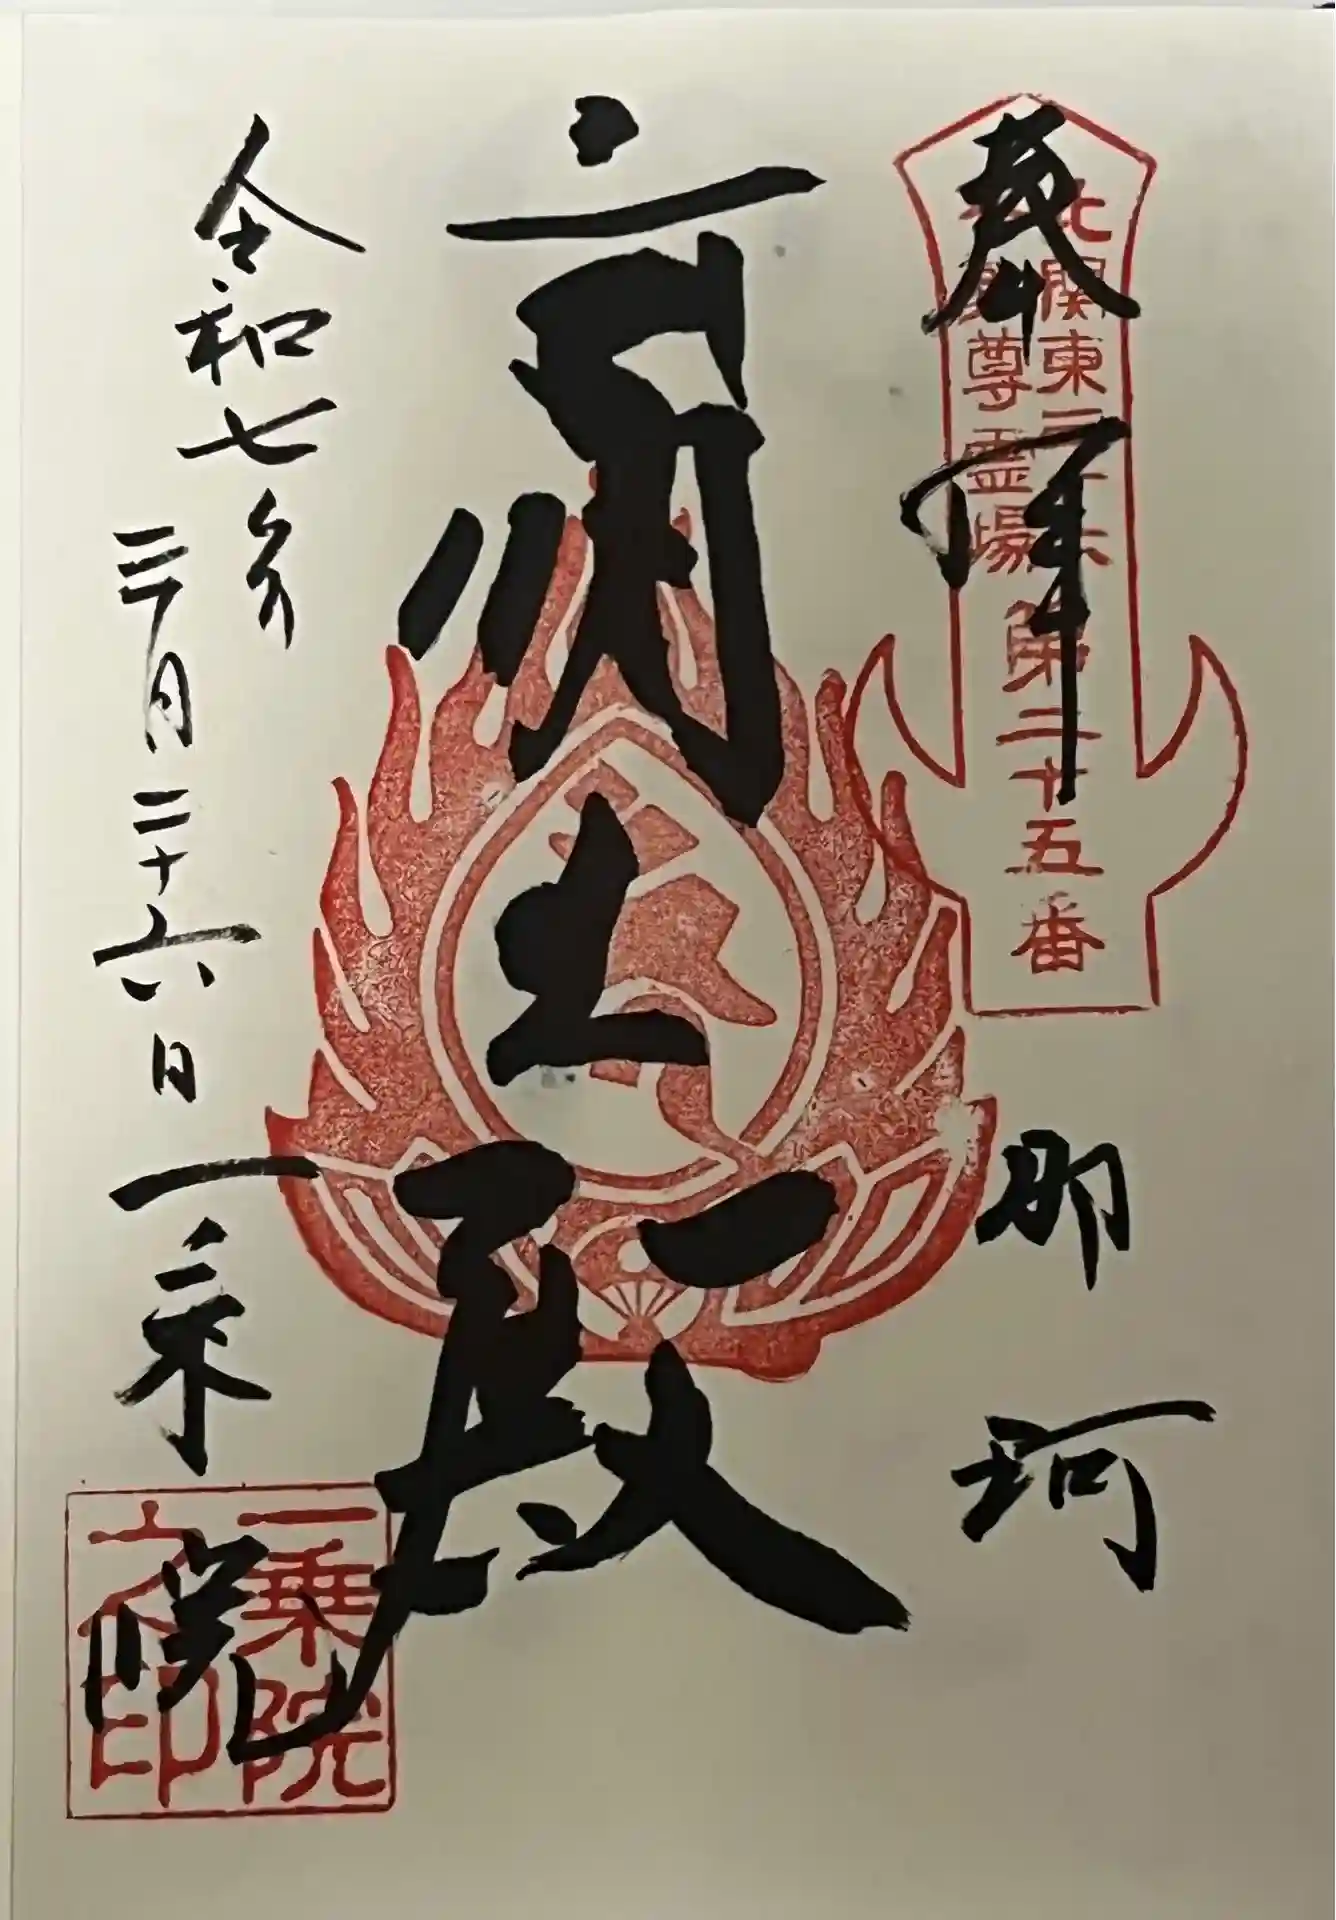 奉拝
北関東三十六
不動尊霊場
第二十五番
那珂
殿
令和七年
三月二十六日
一乗院
一乗院
之印